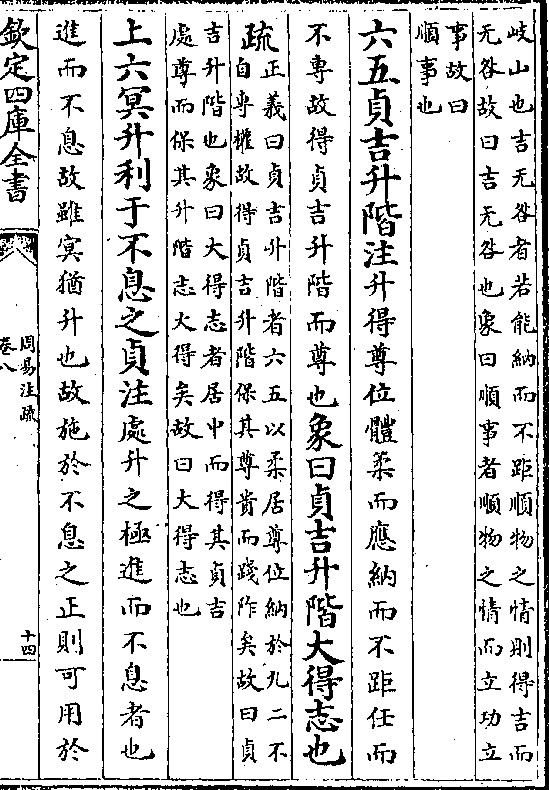 岐山也吉无咎者若能納而不距順物之情則得吉而
无咎故曰吉无咎也象曰順事者順物之情而立功立
事故曰
順事也
六五貞吉升階注升得尊位體柔而應納而不距任而
不專故得貞吉升階而尊也象曰貞吉升階大得志也
疏正義曰貞吉升階者六五以柔居尊位納於九二不
自專權故得貞吉升階保其尊貴而踐阼矣故曰貞
吉升階也象曰大得志者居中而得其貞吉
處尊而保其升階志大得矣故曰大得志也
上六冥升利于不息之貞注處升之極進而不息者也
進而不息故雖冥猶升也故施於不息之正則可用於
欽定四庫全書
周易注疏
卷八
十四